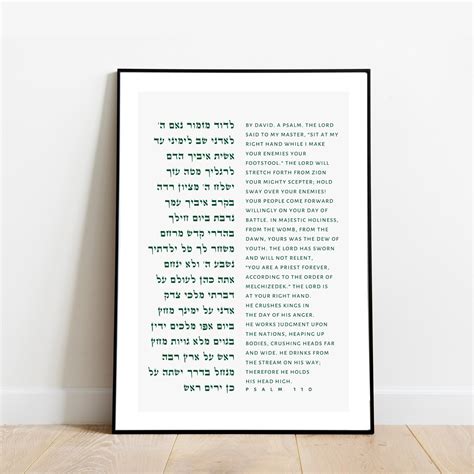 לדוד מזמור נאם ה'
לאדני שב לימיני עד
אשית איביך הדם
לרגליך מטה עזך
ישלח ה' מציון רדה
בקרב איביך עמך
נדבת ביום חילך
בהדרי קדש מרחם
משחר לך טל ילדתיך
נשבע ה' ולא ינחם
אתה כהן לעולם על
דברתי מלכי צדק
אדני על ימינך מחץ
ביום אפו מלכים ידין
בגוים מלא גויות מחץ
ראש על ארץ רבה
מנחל בדרך ישתה על
כן ירים ראש
BY DAVID. A PSALM. THE LORD
SAID TO MY MASTER, "SIT AT MY
RIGHT HAND WHILE I MAKE
YOUR ENEMIES YOUR
FOOTSTOOL." THE LORD WILL
STRETCH FORTH FROM ZION
YOUR MIGHTY SCEPTER; HOLD
SWAY OVER YOUR ENEMIES!
YOUR PEOPLE COME FORWARD
WILLINGLY ON YOUR DAY OF
BATTLE. IN MAJESTIC HOLINESS,
FROM THE WOMB, FROM THE
DAWN, YOURS WAS THE DEW OF
YOUTH. THE LORD HAS SWORN
AND WILL NOT RELENT,
"YOU ARE A PRIEST FOREVER,
ACCORDING TO THE ORDER OF
MELCHIZEDEK." THE LORD IS
AT YOUR RIGHT HAND.
HE CRUSHES KINGS IN
THE DAY OF HIS ANGER.
HE WORKS JUDGMENT UPON
THE NATIONS, HEAPING UP
BODIES; CRUSHING HEADS FAR
AND WIDE. HE DRINKS FROM
THE STREAM ON HIS WAY;
THEREFORE HE HOLDS
HIS HEAD HIGH.
PSALM 110